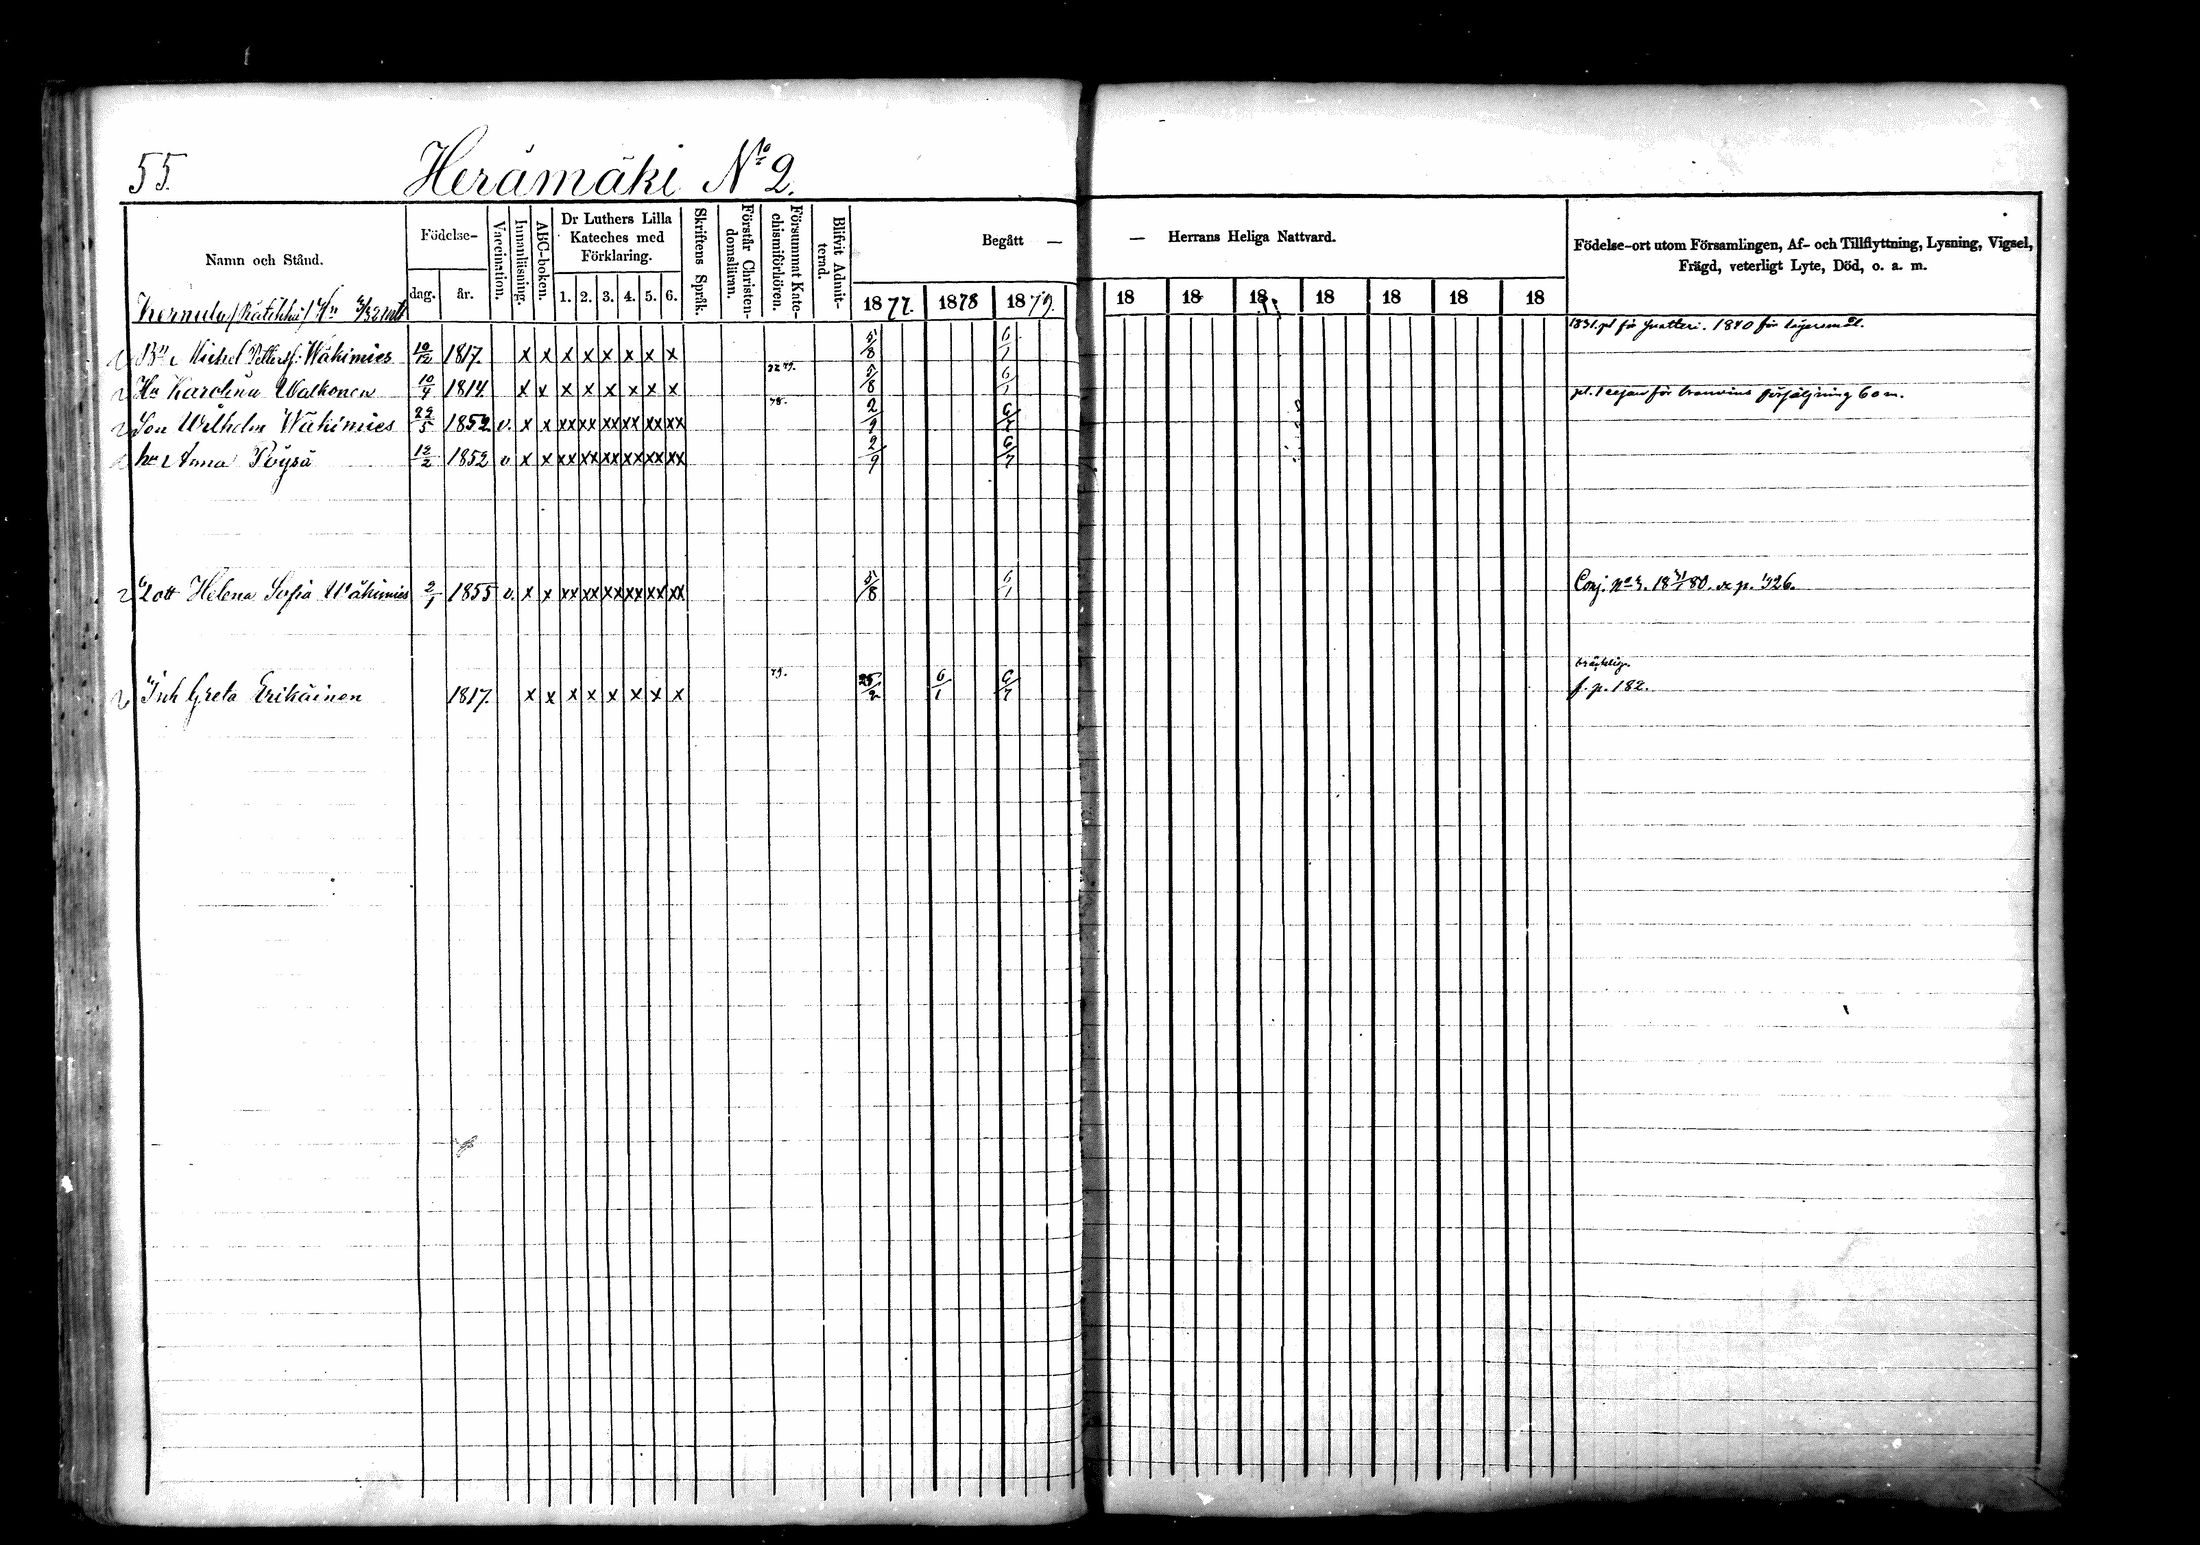 55.
Herämäki No 2.
Namn och Stånd.
Födelse-
dag.
år.
Vaccination.
Innanläsning.
ABC-boken.
Dr Luthers Lilla
Kateches med
Förklaring.
1. 2. 3. 4. 5. 6.
Skriftens Språk.
Förstår Christen-
domsläran.
Försummat Kate-
chismiförhören.
Blifvit Admit-
terad.
Begått — — Herrans Heliga Nattvard.
1877. 1878 1879. 18 18 18 18 18 18 18
Födelse-ort utom Församlingen, Af- och Tillflyttning, Lysning, Vigsel,
Frägd, veterligt Lyte, Död, o. a. m.
1831. pl för 1840 för lägersmål.
Michel Petterss: Wähimies 10/12 1817. x x x x x x x x 5/8 6/1
Hu Karolina Walkonen 10/4 1814 x x x x x x x x 5/8 6/1 pl. för bränvins försäljning 60 m.
78.
Son Wilhelm Wähimies 22/5 1852 v. x x xx xx xx xx xx xx 2/9 6/7
hu Anna Pöysä 12/2 1852 v x x xx xx xx xx xx xx 2/9 6/7
Dott Helena Sofia Wähimies 2/1 1855 v. x x xx xx xx xx xx xx 5/8 6/1 Conj. No 3. 18 80. p. 326.
79. bräcklig.
Inh Greta Erikäinen 1817. x x x x x x x x 25/2 6/1 6/7 f. p. 182.